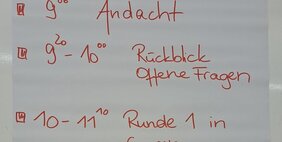 9⁰⁰ Andacht
9²⁰ - 10⁰⁰ Rückblick
Offene Fragen
10 - 11¹⁰ Runde 1 in